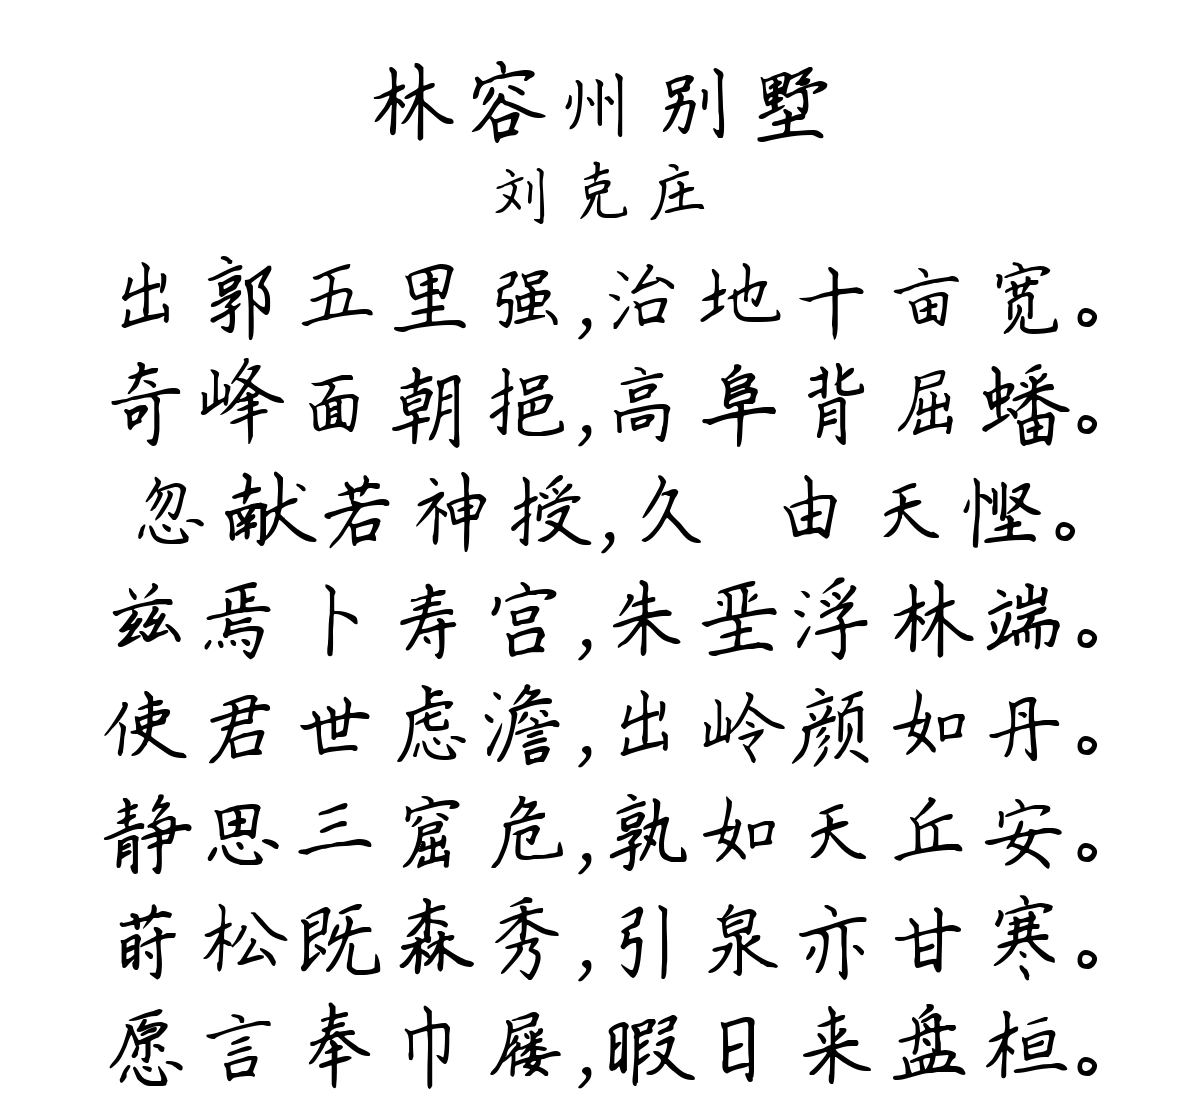 林容州别墅
刘克庄
出郭五里强,治地十亩宽。
奇峰面朝挹,高阜背屈蟠。
忽献若神授,久 由天悭。
兹焉卜寿宫,朱垩浮林端。
使君世虑澹,出岭颜如丹。
静思三窟危,孰如天丘安。
莳松既森秀,引泉亦甘寒。
愿言奉巾屦,暇日来盘桓。